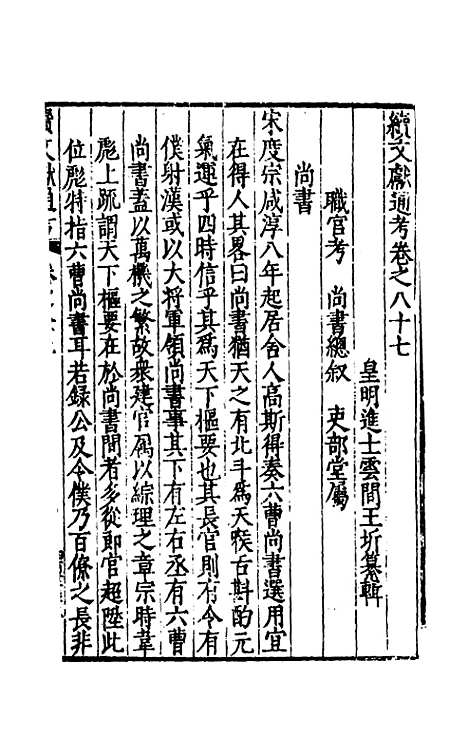 續文獻通考卷之八十七
皇明進士雲間王圻纂輯
職官考　尚書總叙　吏部堂屬
尚書
宋度宗咸淳八年起居舍人高斯得奏六曹尚書選用宜
在得人其畧曰尚書猶天之有北斗為天喉舌斟酌元
氣運乎四時信乎其為天下樞要也其長官則有令有
僕射漢或以大将軍領尚書事其下有左右丞有六曹
尚書蓋以萬機之繁故衆建官属以綜理之章宗時韋
彪上疏謂天下樞要在於尚書間者多從郎官超陞此
位彪特指六曹尚書耳若録公及令僕乃百僚之長非